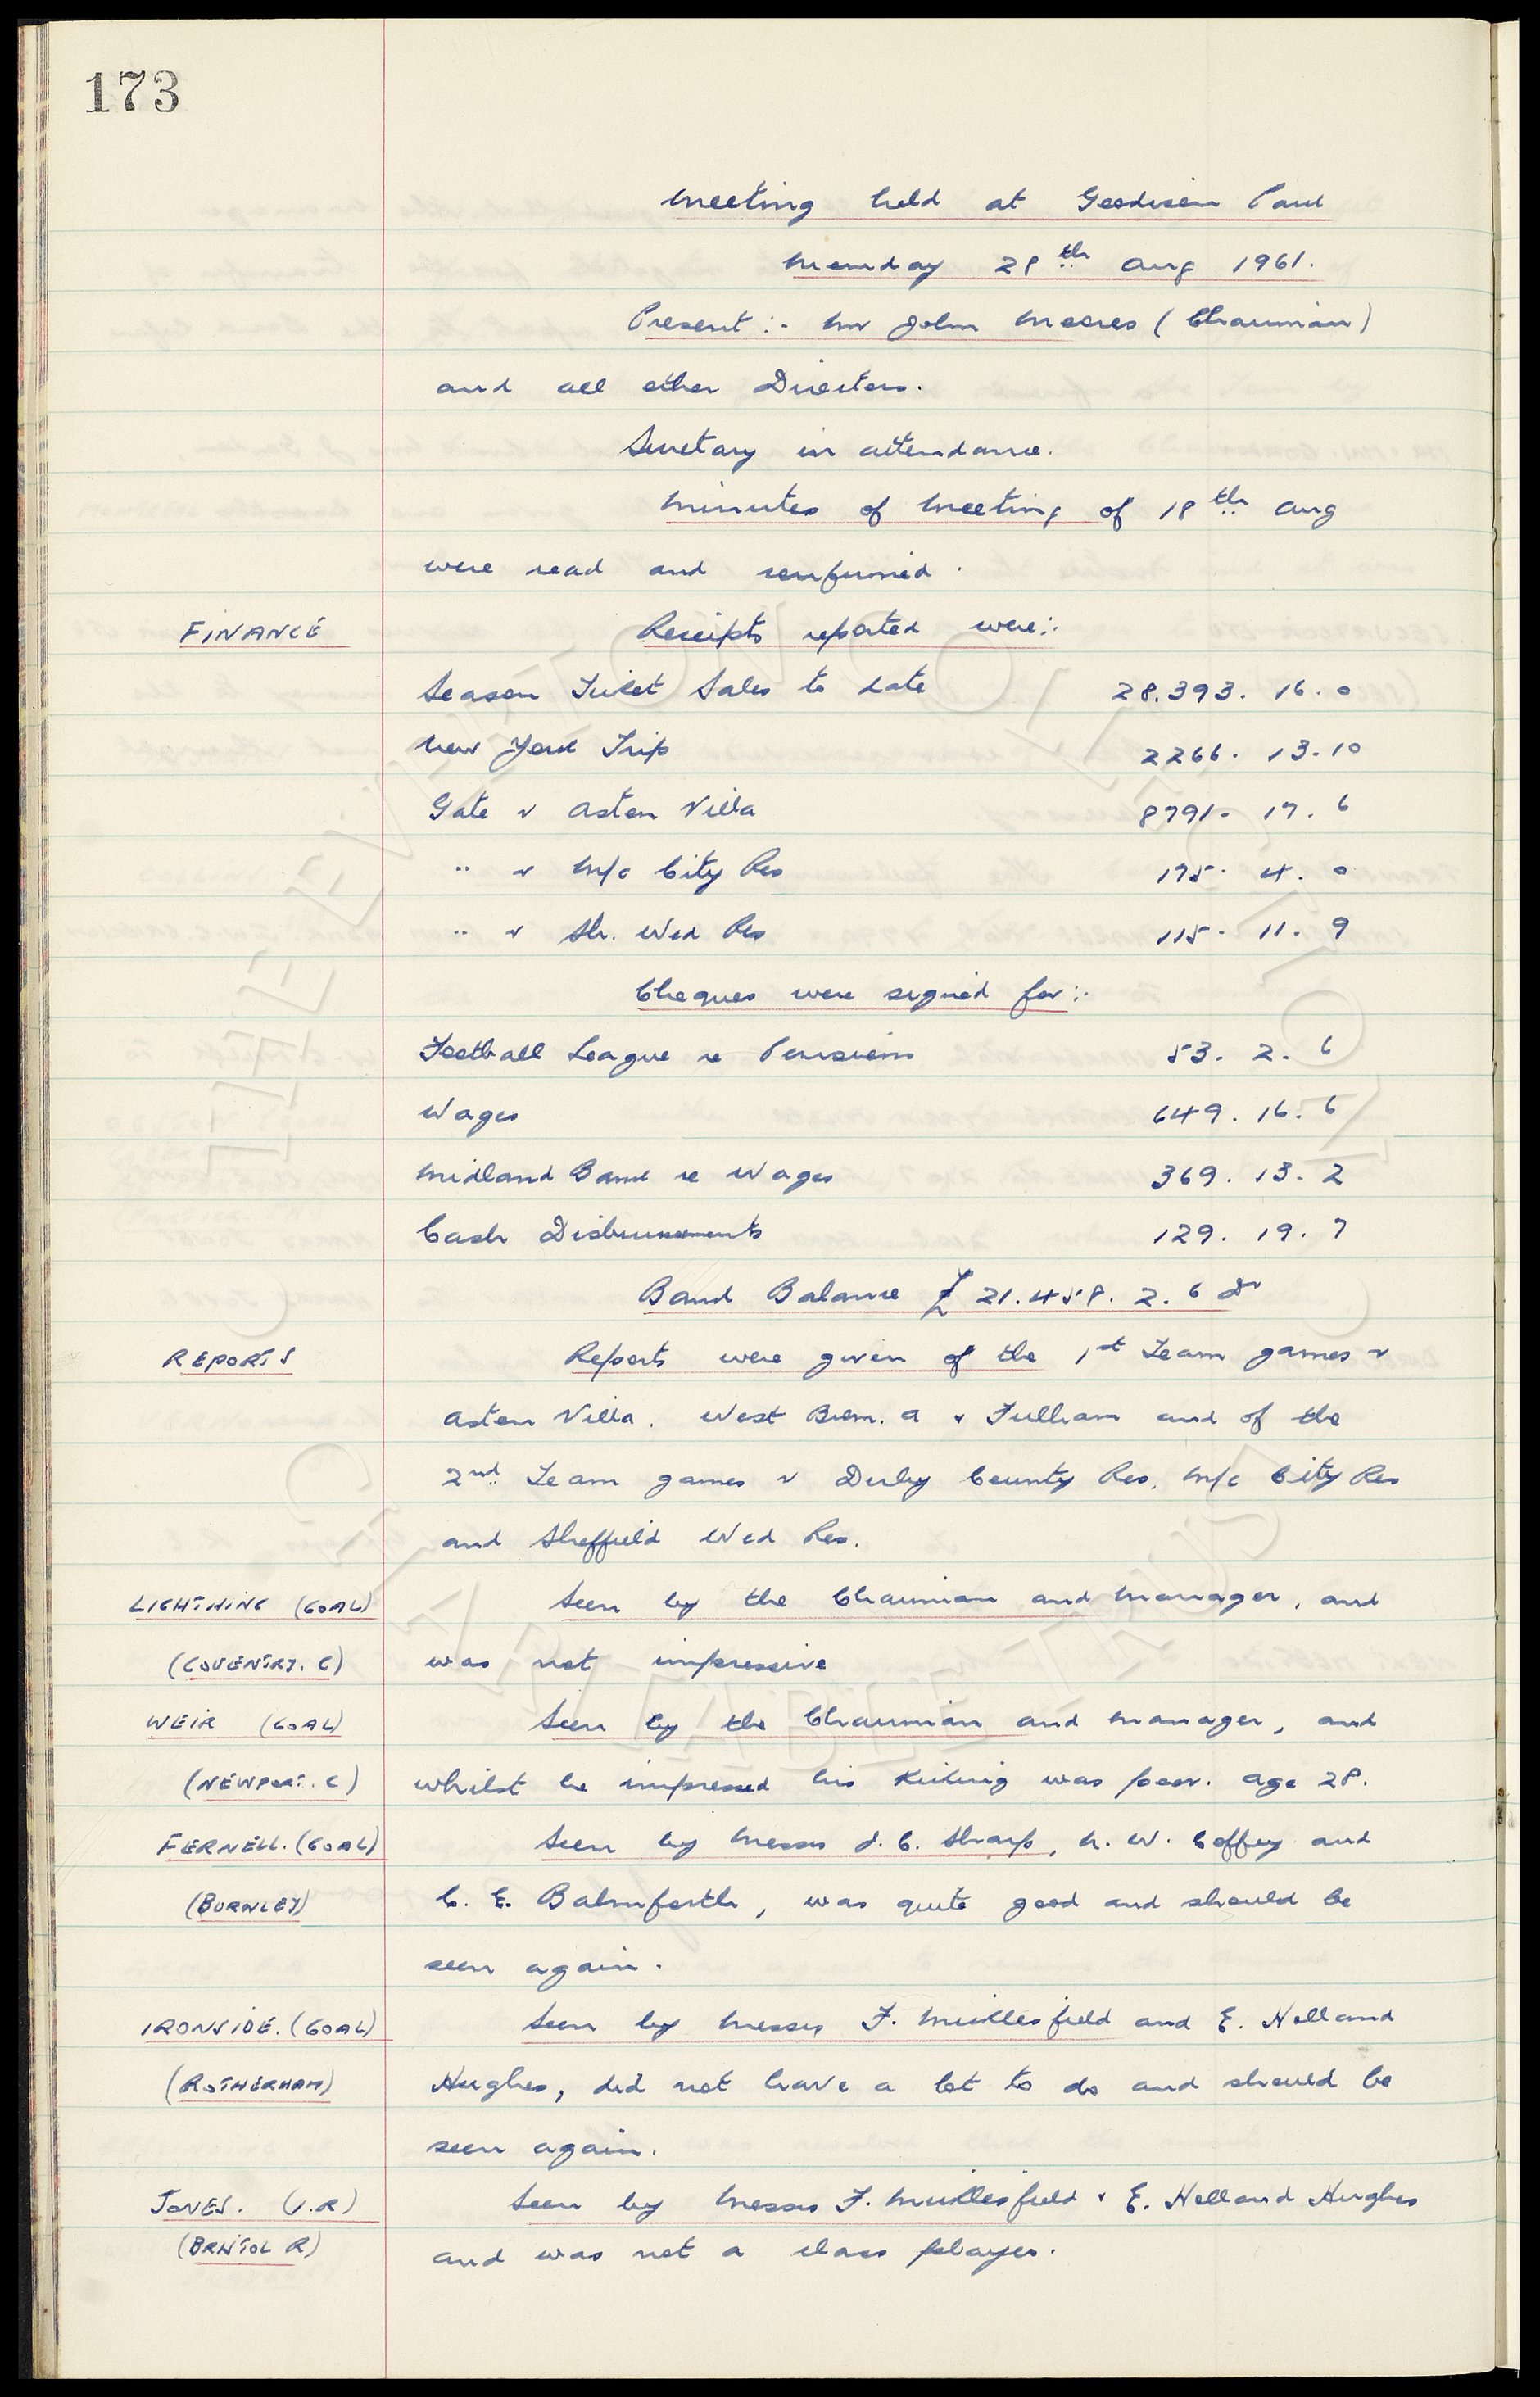 173
Meeting held at Goodison Park
Monday 28th Aug 1961.
Present :- Mr John Moores (Chairman)
and all other Directors.
Secretary in attendance.
Minutes of Meeting of 18th Aug
were read and confirmed.
FINANCE Receipts reported were :-
Season Ticket Sales to date 28.393. 16. 0
New York Trip 2266. 13. 10
Gate v Aston Villa 8791. 17. 6
" v M/c City Res 175. 4. 0
" v Sh. Wed Res 115. 11. 9
Cheques were signed for :-
Football League re Pensions 53. 2. 6
Wages 649. 16. 6
Midland Bank re Wages 369. 13. 2
Cash Disbursements 129. 19. 7
Bank Balance £ 21.458. 2. 6 Dr
REPORTS Reports were given of the 1st Team games v
Aston Villa. West Brom. A & Fulham and of the
2nd Team games v Derby County Res, M/c City Res
and Sheffield Wed Res.
LIGHTNING (GOAL) Seen by the Chairman and Manager, and
(COVENTRY. C) was not impressive
WEIR (GOAL) Seen by the Chairman and Manager, and
(NEWPORT. C) whilst he impressed his kicking was poor. Age 28.
FERNELL. (GOAL) Seen by Messrs J. C. Sharp, N. W. Coffey and
(BURNLEY) C. E. Balmforth, was quite good and should be
seen again.
IRONSIDE. (GOAL) Seen by Messrs F. Micklesfield and E. Holland
(ROTHERHAM) Hughes, did not have a lot to do and should be
seen again.
JONES. (I.R) Seen by Messrs F. Micklesfield & E. Holland Hughes
(BRISTOL R) and was not a class player.